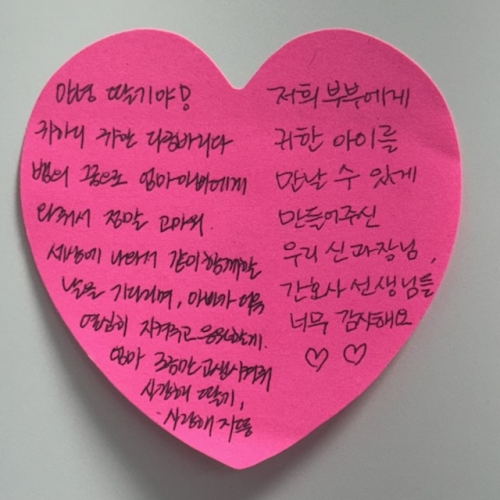 안녕 딸기야!
귀하디 귀한 다람바리다
뱀의 꿈으로 엄마아빠에게
와줘서 정말 고마워.
세상에 나와서 같이 함께할
날을 기다리며, 아빠가 더욱
열심히 지켜주고 응원할게.
엄마 조금만 고생시켜줘
사랑해 딸기,
사랑해
저희 부부에게
귀한 아이를
만날 수 있게
만들어주신
우리 신과장님,
간호사 선생님들
너무 감사해요
♡ ♡